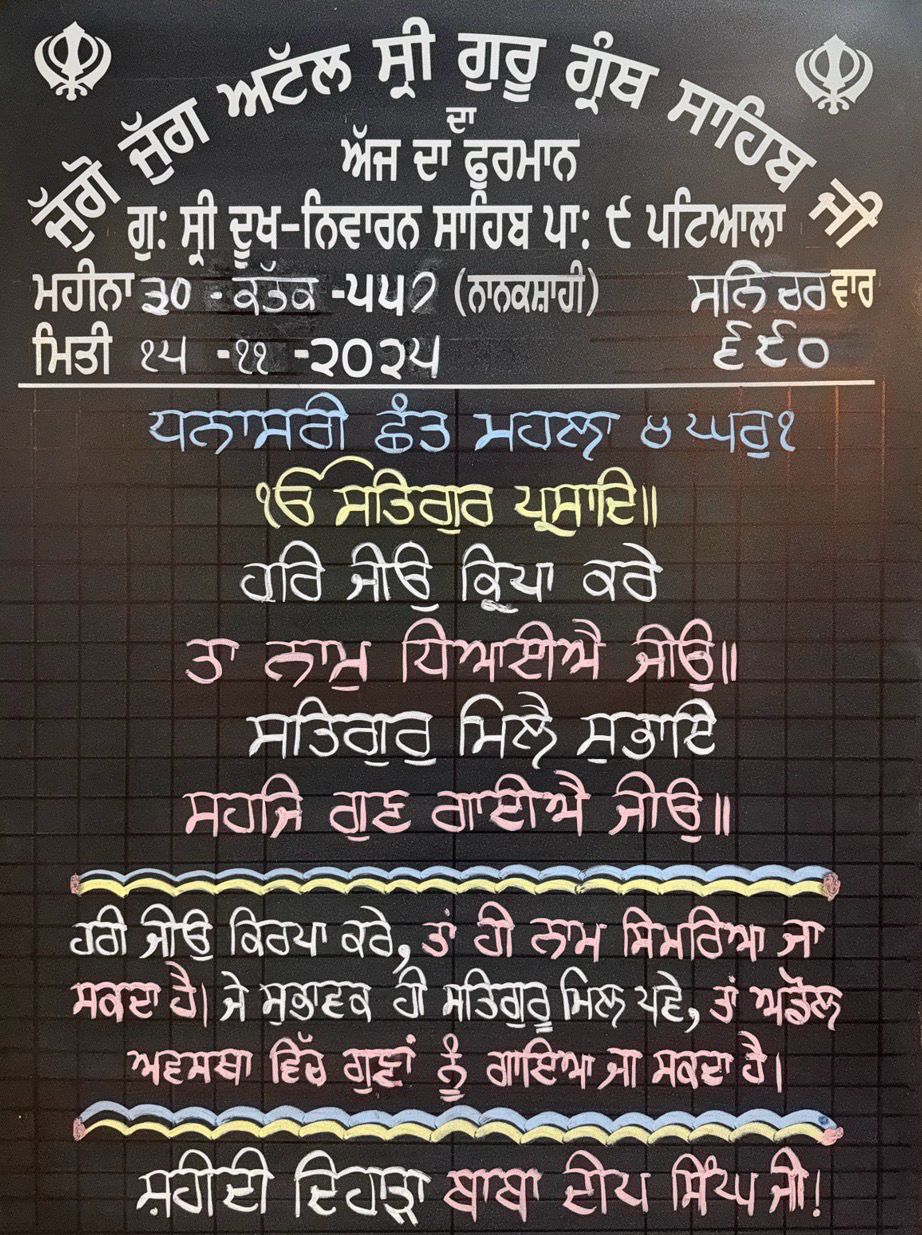 ਜੁੱਗੋ ਜੁੱਗ ਅਟੱਲ ਸ੍ਰੀ ਗੁਰੂ ਗ੍ਰੰਥ ਸਾਹਿਬ ਜੀ
ਦਾ
ਅੱਜ ਦਾ ਫੁਰਮਾਨ
ਗੁ: ਸ੍ਰੀ ਦੂਖ-ਨਿਵਾਰਨ ਸਾਹਿਬ ਪਾ: ੯ ਪਟਿਆਲਾ
ਮਹੀਨਾ ੩੦ - ਕੱਤਕ -੫੫੭ (ਨਾਨਕਸ਼ਾਹੀ) ਸਨਿਚਰਵਾਰ
ਮਿਤੀ ੧੫ -੧੧ -੨੦੨੫ ੬੯੦
ਧਨਾਸਰੀ ਛੰਤ ਮਹਲਾ ੪ ਘਰੁ ੧
ੴ ਸਤਿਗੁਰ ਪ੍ਰਸਾਦਿ॥
ਹਰਿ ਜੀਉ ਕ੍ਰਿਪਾ ਕਰੇ
ਤਾ ਨਾਮੁ ਧਿਆਈਐ ਜੀਉ॥
ਸਤਿਗੁਰੁ ਮਿਲੈ ਸੁਭਾਇ
ਸਹਜਿ ਗੁਣ ਗਾਈਐ ਜੀਉ॥
ਹਰੀ ਜੀਉ ਕਿਰਪਾ ਕਰੇ, ਤਾਂ ਹੀ ਨਾਮ ਸਿਮਰਿਆ ਜਾ
ਸਕਦਾ ਹੈ। ਜੇ ਸੁਭਾਵਕ ਹੀ ਸਤਿਗੁਰੂ ਮਿਲ ਪਵੇ, ਤਾਂ ਅਡੋਲ
ਅਵਸਥਾ ਵਿੱਚ ਗੁਣਾਂ ਨੂੰ ਗਾਇਆ ਜਾ ਸਕਦਾ ਹੈ।
ਸ਼ਹੀਦੀ ਦਿਹਾੜਾ ਬਾਬਾ ਦੀਪ ਸਿੰਘ ਜੀ!